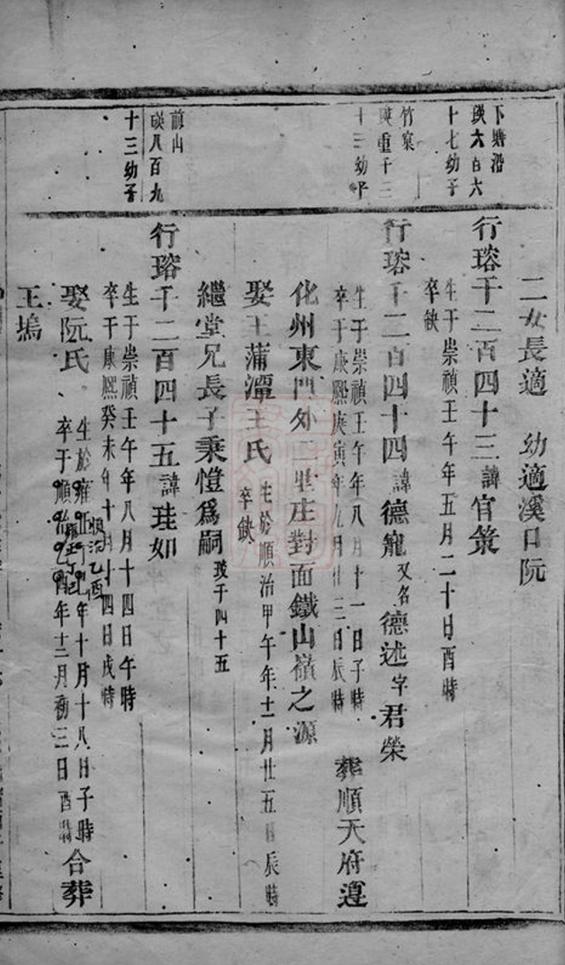 二女長適　幼適溪口阮
下塘沿
瑛六百六
十七幼子
行瑢千二百四十三諱官策
生于崇禎壬午年五月二十日酉時
卒缺
竹窠
瑛重千三
行瑢千二百四十四諱德寵又名德述字君榮
十三幼子
生于崇禎壬午年八月十一日子時
卒于康熙庚寅年九月廿三日辰時
葬順天府遵
化州東門外二里庄對面鐵山嶺之源
娶王蒲潭王氏
生於順治甲午年十一月廿五日辰時
卒缺
繼堂兄長子秉愷爲嗣
玻于四十五
前山
瑛八百九
十三幼子
行瑢千二百四十五諱珪如
生于崇禎壬午年八月十四日午時
卒于康熙癸未年十月十四日戌時
娶阮氏
生於順治乙酉年十月十八日子時
卒于雍正年十二月初三日酉時
合葬
王塢